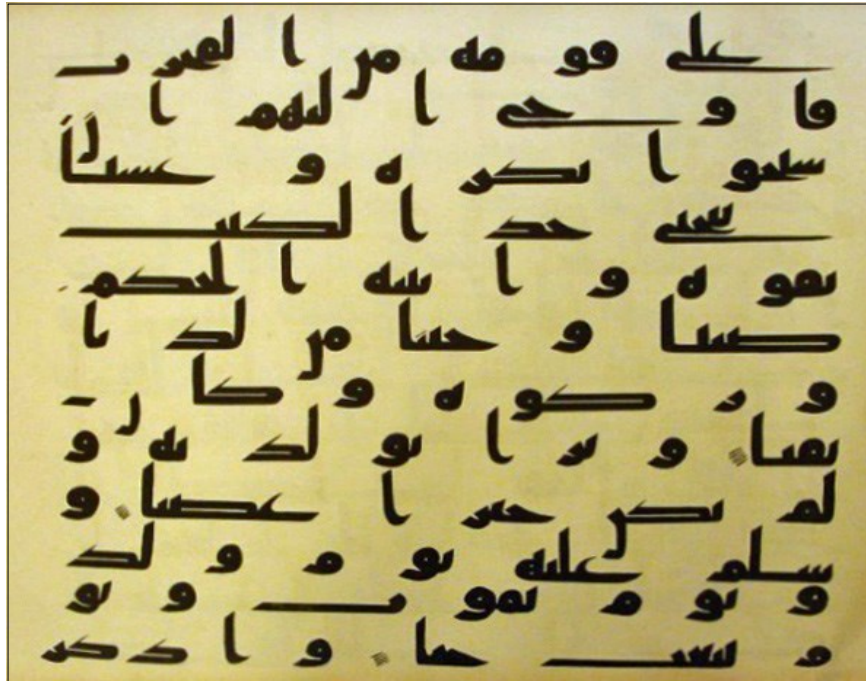 على قومه من المحرب
فاوحى اليهم ان
سبحوا بكره وعشيا
ييحيى خذ الكتب
بقوه واتينه الحكم
صبيا وحننا من لدنا
وزكوه وكان ت
قيا وبرا بولديه و
لم يكن جبرا عصيا و
سلم عليه يوم ولد
ويوم يموت ويو
م يبعث حيا واذكر